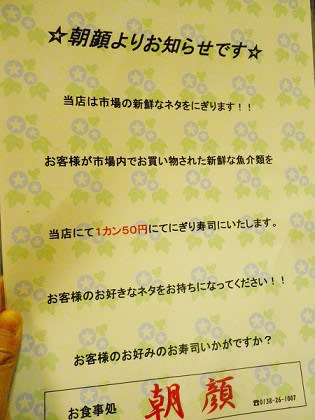 ☆朝顔よりお知らせです☆
当店は市場の新鮮なネタをにぎります！！
お客様が市場内でお買い物された新鮮な魚介類を
当店にて1カン50円にてにぎり寿司にいたします。
お客様のお好きなネタをお持ちになってください！！
お客様のお好みのお寿司いかがですか？
お食事処 朝顔 ☎0138-26-1007